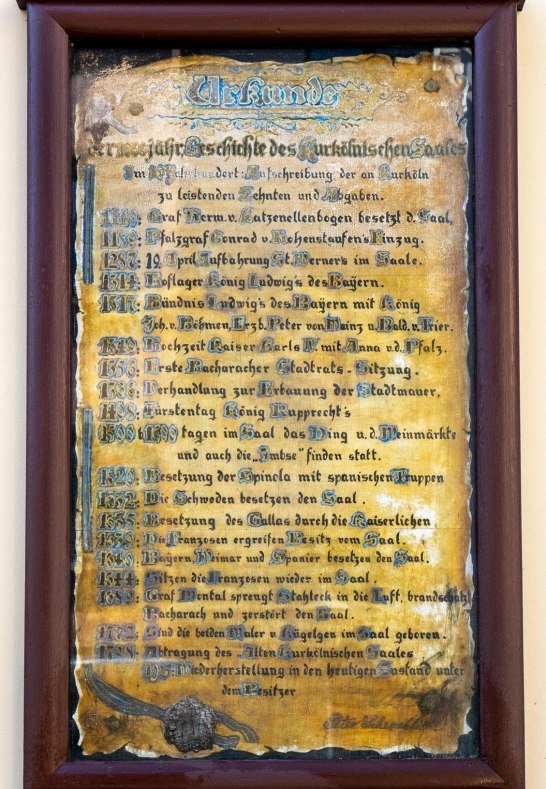 Urkunde
jähr.Geschichte des Kurkölnischen Saales
Im Jahrhundert: Aufschreibung der an Kurköln
zu leistenden Zehnten und Abgaben.
Graf Herm. v. Katzenellenbogen besetzt d. Saal.
Pfalzgraf Conrad v. Hohenstaufen's Einzug.
1287: 19. April Aufbahrung St. Werner's im Saale.
1314: Hoflager König Ludwig's des Bayern.
1317: Bündnis Ludwig's des Bayern mit König
Joh. v. Böhmen, Erzb. Peter von Mainz u. Bald. v. Trier.
1349: Hochzeit Kaiser Karls IV. mit Anna v. d. Pfalz.
1356: Erste Bacharacher Stadtrats - Sitzung.
Verhandlung zur Erbauung der Stadtmauer.
Fürstentag König Rupprecht's
tagen im Saal das Ding u. d. Weinmärkte
und auch die „Imbse" finden statt.
Besetzung der Spinola mit spanischen Truppen
Die Schweden besetzen den Saal.
Besetzung des Gallas durch die Kaiserlichen
1639: Die Franzosen ergreifen Besitz vom Saal.
1640: Bayern, Weimar und Spanier besetzen den Saal.
1644: Sitzen die Franzosen wieder im Saal.
1689: Graf Montal sprengt Stahleck in die Luft, brandschatzt
Bacharach und zerstört den Saal.
1772: Sind die beiden Maler v. Kügelgen im Saal geboren.
1798: Abtragung des „Alten Kurkölnischen Saales
Wiederherstellung in den heutigen Zustand unter
dem Besitzer